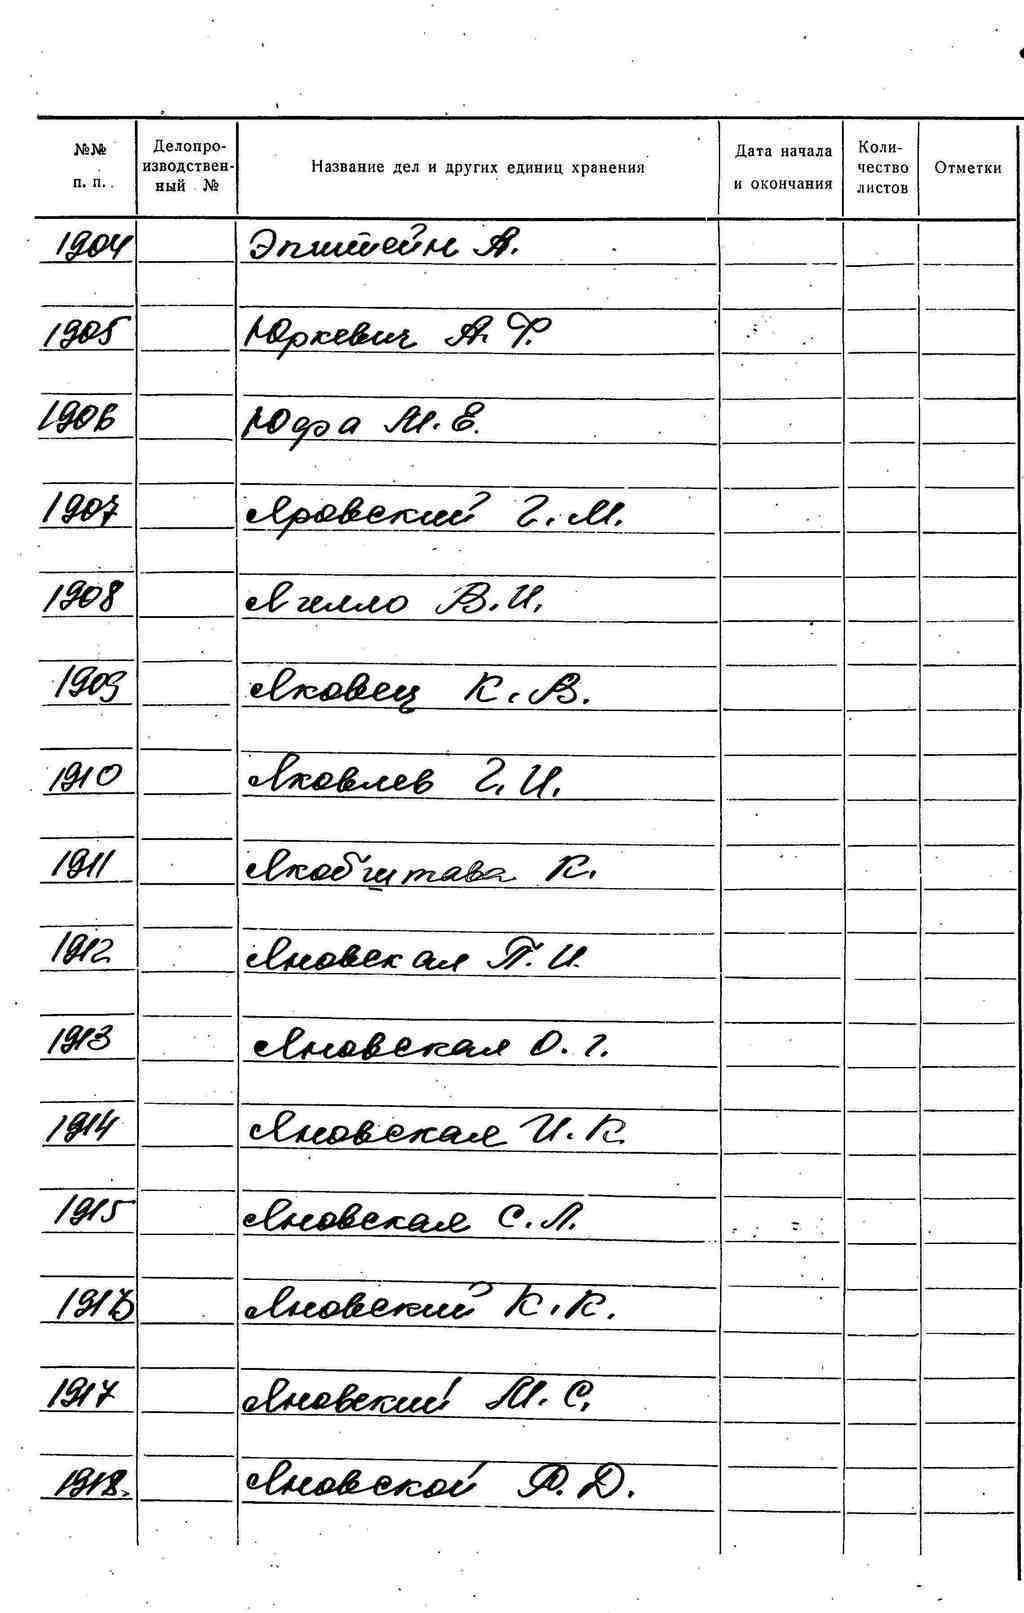 №№ п. п.
Делопро-
изводствен-
ный №
Название дел и других единиц хранения
Дата начала
и окончания
Коли-
чество
листов
Отметки
1904 Эпштейн А.
1905 Юркевич А. Ф.
1906 Юфа М. Е.
1907 Яровский Г. М.
1908 Ягелло В. И.
1909 Яковец К. В.
1910 Яковлев Г. И.
1911 К.
1912 Яновская П. И.
1913 Яновская О. Г.
1914 Яновская И. К.
1915 Яновская С. Л.
1916 Яновский К. К.
1917 Яновский М. С.
1918. Яновской Ф. Д.